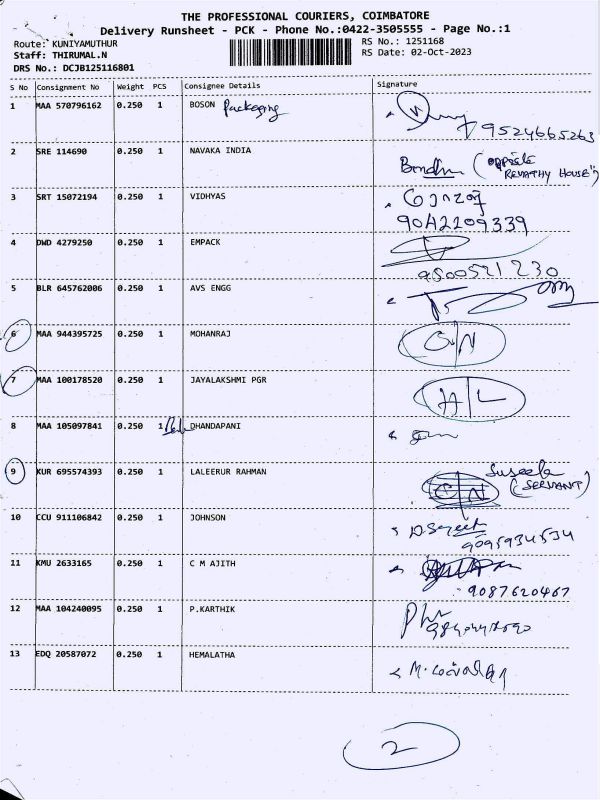 THE PROFESSIONAL COURIERS, COIMBATORE
Delivery Runsheet - PCK - Phone No.:0422-3505555 - Page No.:1
Route: KUNIYAMUTHUR RS No.: 1251168
Staff: THIRUMAL.N RS Date: 02-Oct-2023
DRS No.: DCJB125116801
S No Consignment No Weight PCS Consignee Details Signature
1 MAA 570796162 0.250 1 BOSON Packaging 9524665263
2 SRE 114690 0.250 1 NAVAKA INDIA (opposite
REVATHY HOUSE")
3 SRT 15072194 0.250 1 VIDHYAS
9042209339
4 DWD 4279250 0.250 1 EMPACK
9500521230
5 BLR 645762006 0.250 1 AVS ENGG
6 MAA 944395725 0.250 1 MOHANRAJ
7 MAA 100178520 0.250 1 JAYALAKSHMI PGR H/L
8 MAA 105097841 0.250 1 DHANDAPANI
9 KUR 695574393 0.250 1 LALEERUR RAHMAN Suseela
(SERVANT)
10 CCU 911106842 0.250 1 JOHNSON
9095934534
11 KMU 2633165 0.250 1 C M AJITH
9087620467
12 MAA 104240095 0.250 1 P.KARTHIK
13 EDQ 20587072 0.250 1 HEMALATHA
2